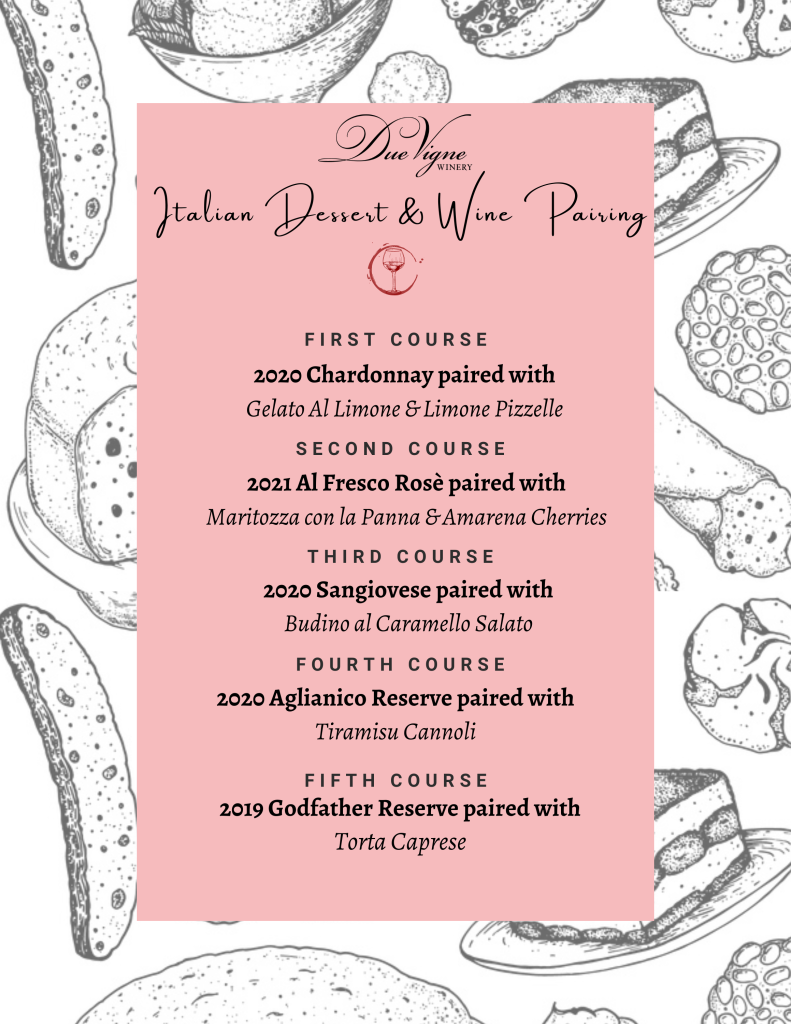 Due Vigne
WINERY
Italian Dessert & Wine Pairing
FIRST COURSE
2020 Chardonnay paired with
Gelato Al Limone & Limone Pizzelle
SECOND COURSE
2021 Al Fresco Rosè paired with
Maritozza con la Panna & Amarena Cherries
THIRD COURSE
2020 Sangiovese paired with
Budino al Caramello Salato
FOURTH COURSE
2020 Aglianico Reserve paired with
Tiramisu Cannoli
FIFTH COURSE
2019 Godfather Reserve paired with
Torta Caprese